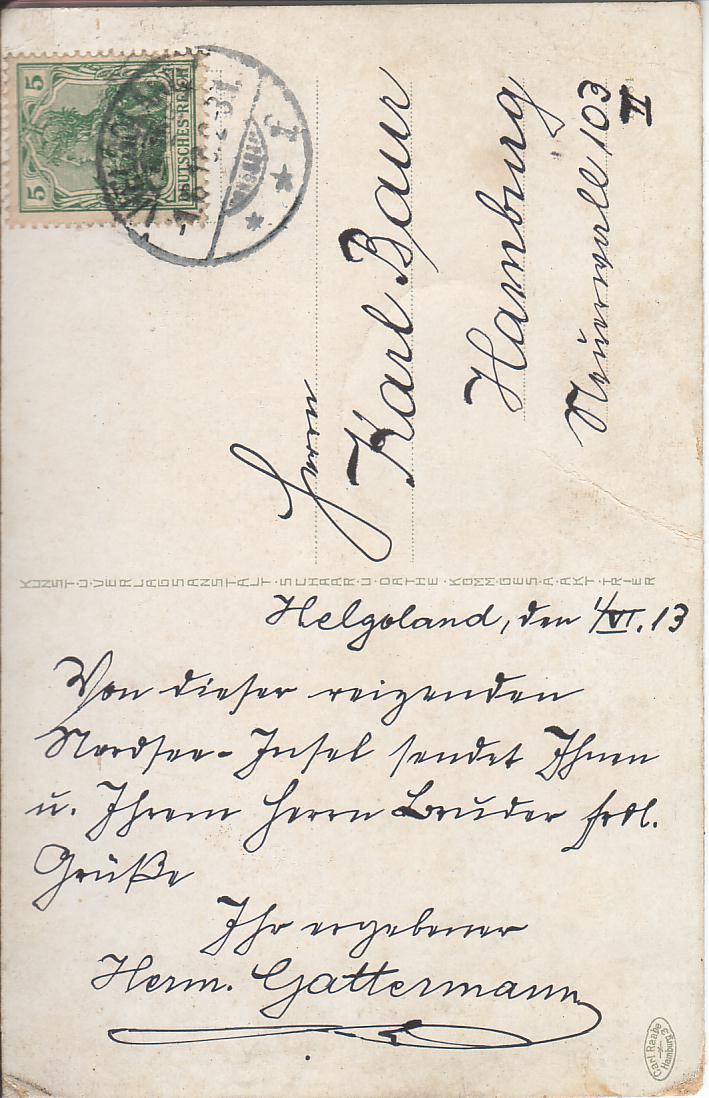 5
5
DEUTSCHES REICH
Herrn
Karl Baur
Hamburg
Neuerwall 103
II
KUNST- U. VERLAGSANSTALT · SCHAAR U. DATHE · KOMM. GES. A. AKT. · TRIER
Helgoland, den 1/VI. 13
Von dieser reizenden
Nordsee-Insel sendet Ihnen
u. Ihrem Herrn Bruder frdl.
Grüße
Ihr ergebener
Herm. Gattermann
Carl Raabe
Hamburg 3